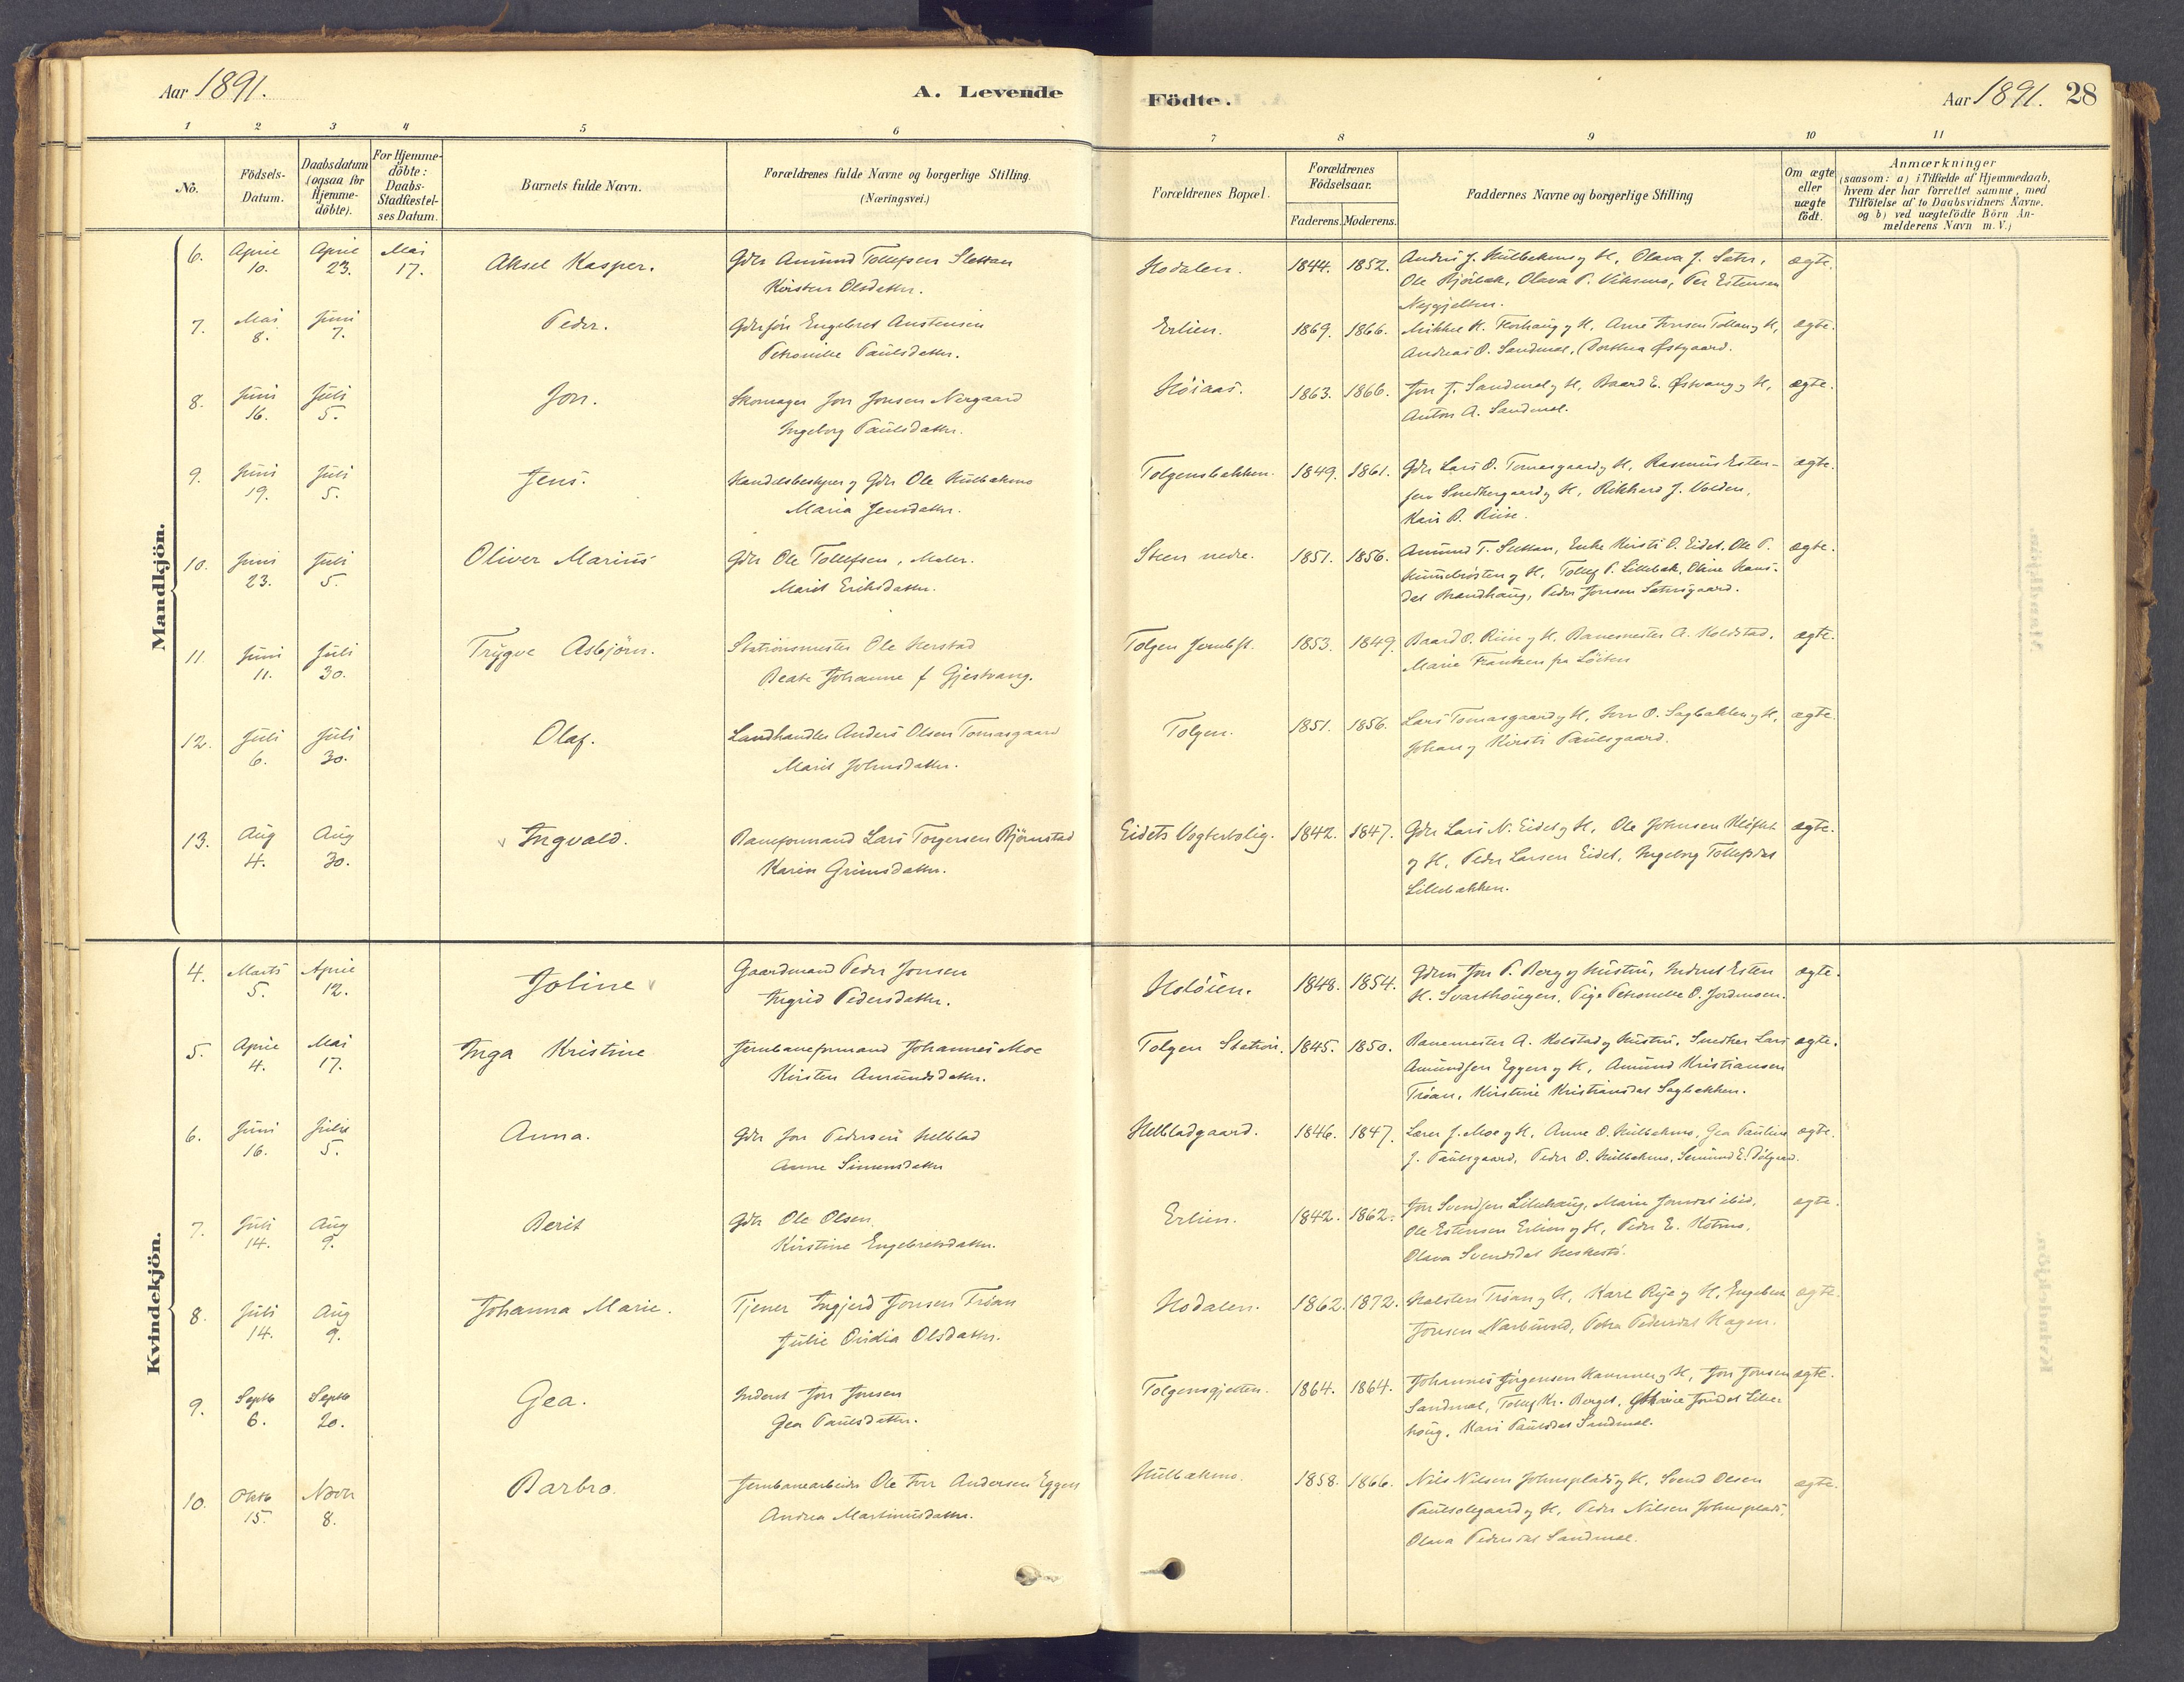 Aar 1891.
A. Levende
Födte.
Aar 1891. 28
1 2 3 4 5 6 7 8 9 10 11
No.
Födsels-
Datum.
Daabsdatum
(ogsaa for
Hjemme-
döbte).
For Hjemme-
döbte:
Daabs-
Stadfæstel-
ses Datum.
Barnets fulde Navn.
Forældrenes fulde Navne og borgerlige Stilling.
(Næringsvei.)
Forældrenes Bopæl.
Forældrenes
Födselsaar.
Faderens. Moderens.
Faddernes Navne og borgerlige Stilling
Om ægte
eller
uægte
födt.
Anmærkninger
(saasom: a) i Tilfælde af Hjemmedaab,
hvem der har forrettet samme, med
Tilföielse af to Daabsvidners Navne.
og b) ved uægtefödte Börn An-
melderens Navn m. V.)
Mandkjön.
6. April 10. April 23. Mai 17. Aksel Kasper.
Gdr Amund Tollefsen Slettan
Kirsten Olsdatter.
Hodalen. 1844. 1852.
Anders J. Kulbakmo og H, Olava J. Sæter,
Ole Bjørbæk, Olava P. Vikmo, Per Estensen
Nygjelten.
ægte.
7. Mai 8. Juni 7. Peder.
Gdrsøn Engebret Austensen
Petronille Paulsdatter.
Erlien. 1869. 1866.
Mikkel K. Korhaug og H, Arne Jonsen Tollan og H,
Andreas O. Sandmæl, Dorthea Østgaard.
ægte.
8. Juni 16. Juli 5. Jon.
Skomager Jon Jonsen Nergaard
Ingeborg Paulsdatter.
Høiaas. 1863. 1866.
Jon J. Sandmæl og H, Baard E. Østvang og H,
Anton A. Sandmæl.
ægte.
9. Juni 19. Juli 5. Jens.
Handelsbestyrer og Gdr Ole Kulbakmo
Maria Jensdatter.
Tolgensbakken. 1849. 1861.
Gdr Lars O. Tomasgaard og H, Rasmus Esten-
sen Snedkergaard og H, Rikhard J. Volden,
Kari B. Riise.
ægte.
10. Juni 23. Juli 5. Oliver Marius
Gdr Ole Tollefsen, Maler.
Marit Eriksdatter.
Steen nedre. 1851. 1856.
Amund T. Slettan, Enke Kirsti O. Eidet, Ole P.
og H, Tollef P. Lillebæk, Oline Hans-
dat Brandhaug, Peder Jonsen Sætersgaard.
ægte.
11. Juni 11. Juli 30. Trygve Asbjörn.
Stationsmester Ole Herstad
Beate Johanne f Gjestvang.
Tolgen Jernbst. 1853. 1849.
Baard O. Riise og H. Banemester A. Kolstad,
Marie Frantzen fra Löiten
ægte.
12. Juli 6. Juli 30. Olaf.
Landhandler Anders Olsen Tomasgaard
Marit Johnsdatter.
Tolgen. 1851. 1856.
Lars Tomasgaard og H, Jon O. Sagbakken og H,
Johan og Kirsti Paulsgaard.
ægte.
13. Aug 4. Aug 30. Ingvald.
Baneformand Lars Torgersen Björnstad
Karen Grimsdatter.
Eidets Vogterbolig. 1842. 1847.
Gdr Lars N. Eidet og H, Ole Johnsen Kløfte
og H, Peder Larsen Eidet, Ingeborg Tollefsdat
Lillebakken.
ægte.
Kvindekjön.
4. Marts 5. April 12. Joline
Gaardmand Peder Jonsen
Ingrid Pedersdatter.
Holöien. 1848. 1854.
Gdrm Jon P. Berg og Hustru, Inderst Esten
H. Svarthaugen, Pige Petronelle O. Jordmoen.
ægte.
5. April 4. Mai 17. Inga Kristine
Jernbaneformand Johannes Moe
Kirsten Amundsdatter.
Tolgen Station. 1845. 1850.
Banemester A. Kolstad og Hustru, Snedker Lars
Amundsen Eggen og H, Amund Kristiansen
Trøan, Kirstine Kristiansdat Sagbakken.
ægte.
6. Juni 16. Juli 5. Anna.
Gdr Jon Pedersen Helblad
Anne Simensdatter
Helbladgaard. 1846. 1847.
Lærer J. Moe og H, Anne O. Kulbakmo, Gea Pauline
J. Paulsgaard, Peder O. Kulbakmo, E. Dølgaard.
ægte.
7. Juli 14. Aug 9. Berit
Gdr Ole Olsen
Kirstine Engebretsdatter.
Erlien. 1842. 1862.
Jon Svendsen Lillehaug, Marie Jonsdat ibid,
Ole Estensen Erlien og H, Peder E. Kotmo,
Olava Svendsdat
ægte.
8. Juli 14. Aug 9. Johanna Marie.
Tjener Ingjerd Jonsen Trøan
Julie Ovidia Olsdatter.
Hodalen. 1862. 1872.
Halsten Trøan og H, Karl Rye og H, Engebret
Jonsen Narbuvold, Petra Pedersdat Hagen.
ægte.
9. Septb 6. Septb 20. Gea.
Inderst Jon Jonsen
Gea Paulsdatter.
Tolgensgjelten. 1864. 1864.
Johannes Jörgensen Kammen og H, Jon Jonsen
Sandmæl, Tollef Kr. Berget, Jonsdat Lille-
haug, Kari Paulsdat Sandmæl.
ægte.
10. Oktb 15. Novb 8. Barbro.
Jernbanearbeider Ole Jon Andersen Eggen
Andrea Martinusdatter.
Kulbakmo. 1858. 1866.
Nils Nilsen Johnsplads og H, Svend Olsen
Paulsolsgaard og H, Peder Nilsen Johnsplads,
Olava Pedersdat Sandmæl.
ægte.